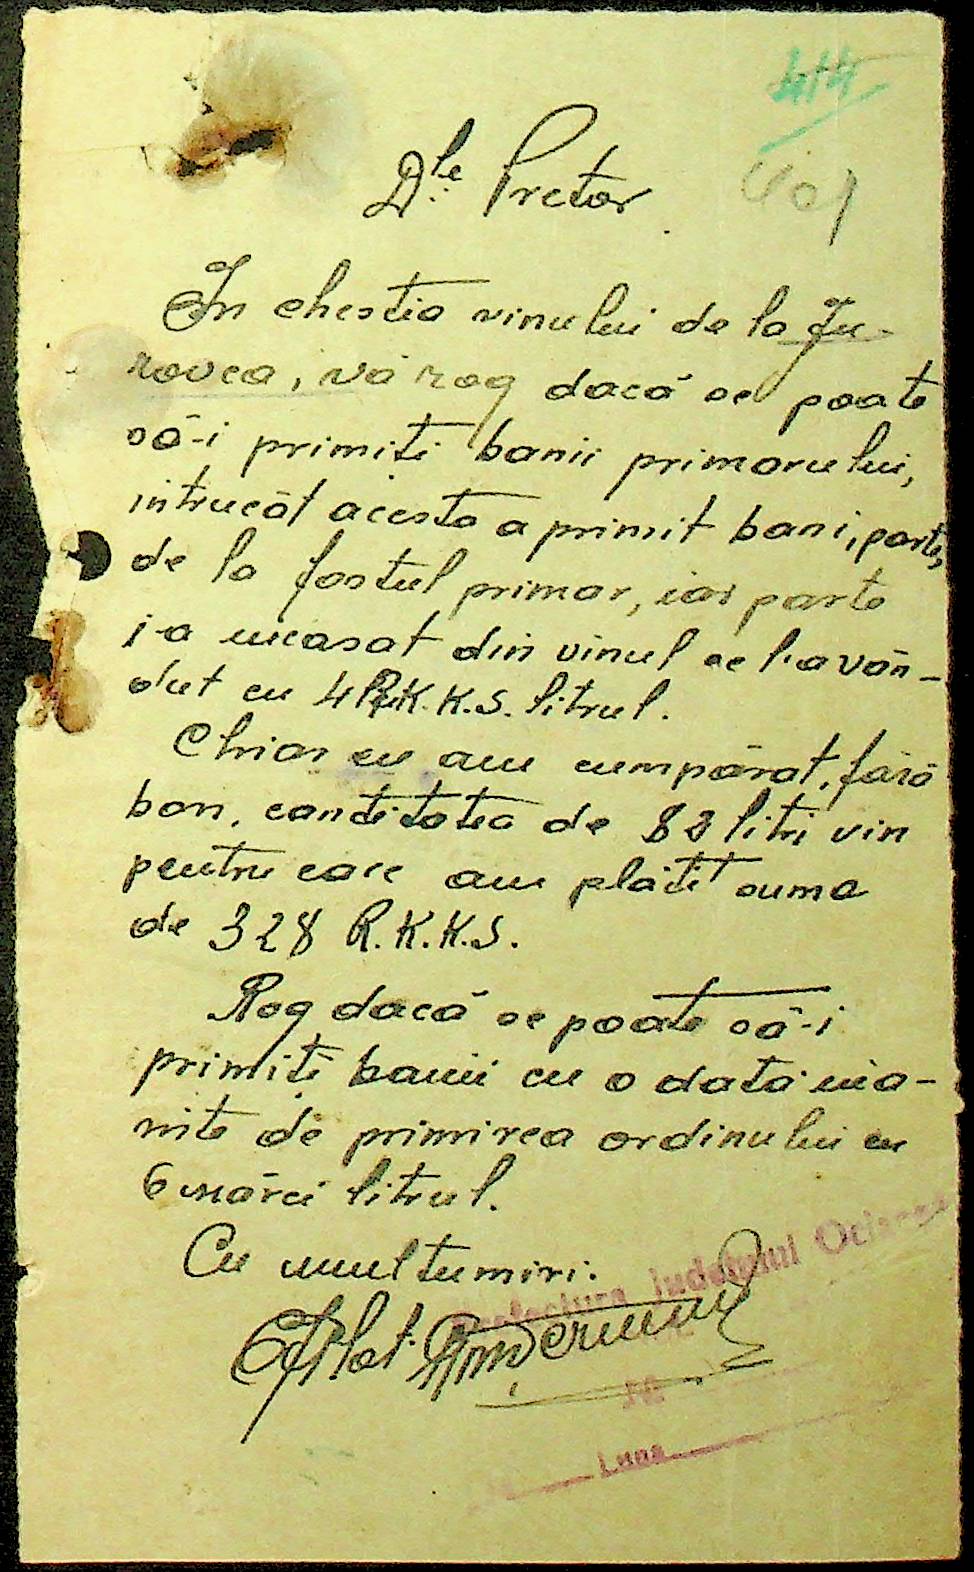 414
D.le Pretor
In chestia vinului de la Ju-
rovca, vă rog dacă se poate
să-i primiți banii primarului,
intrucât acesta a primit bani, parte,
de la fostul primar, iar parte
i-a incasat din vinul ce l-a vân-
dut cu 4 R.K.K.S. litrul.
Chiar eu am cumpărat, fără
bon, cantitatea de 82 litri vin
pentru care am plătit suma
de 328 R.K.K.S.
Rog dacă se poate să-i
primiți banii cu o dată îna-
inte de primirea ordinului cu
6 mărci litrul.
Cu mulțumiri.
Prefectura Județului
Luna